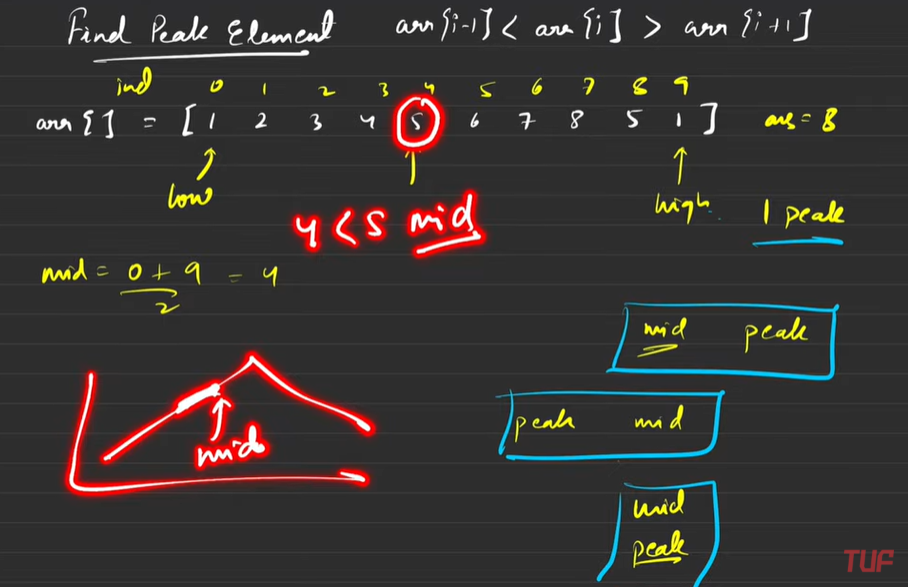 Find Peak Element arr[i-1] < arr[i] > arr[i+1]
ind 0 1 2 3 4 5 6 7 8 9
arr[] = [1 2 3 4 5 6 7 8 5 1] ans = 8
low high
4 < 5 mid 1 peak
mid = 0 + 9 = 4
2
mid peak
peak mid
mid
mid
peak
TUF